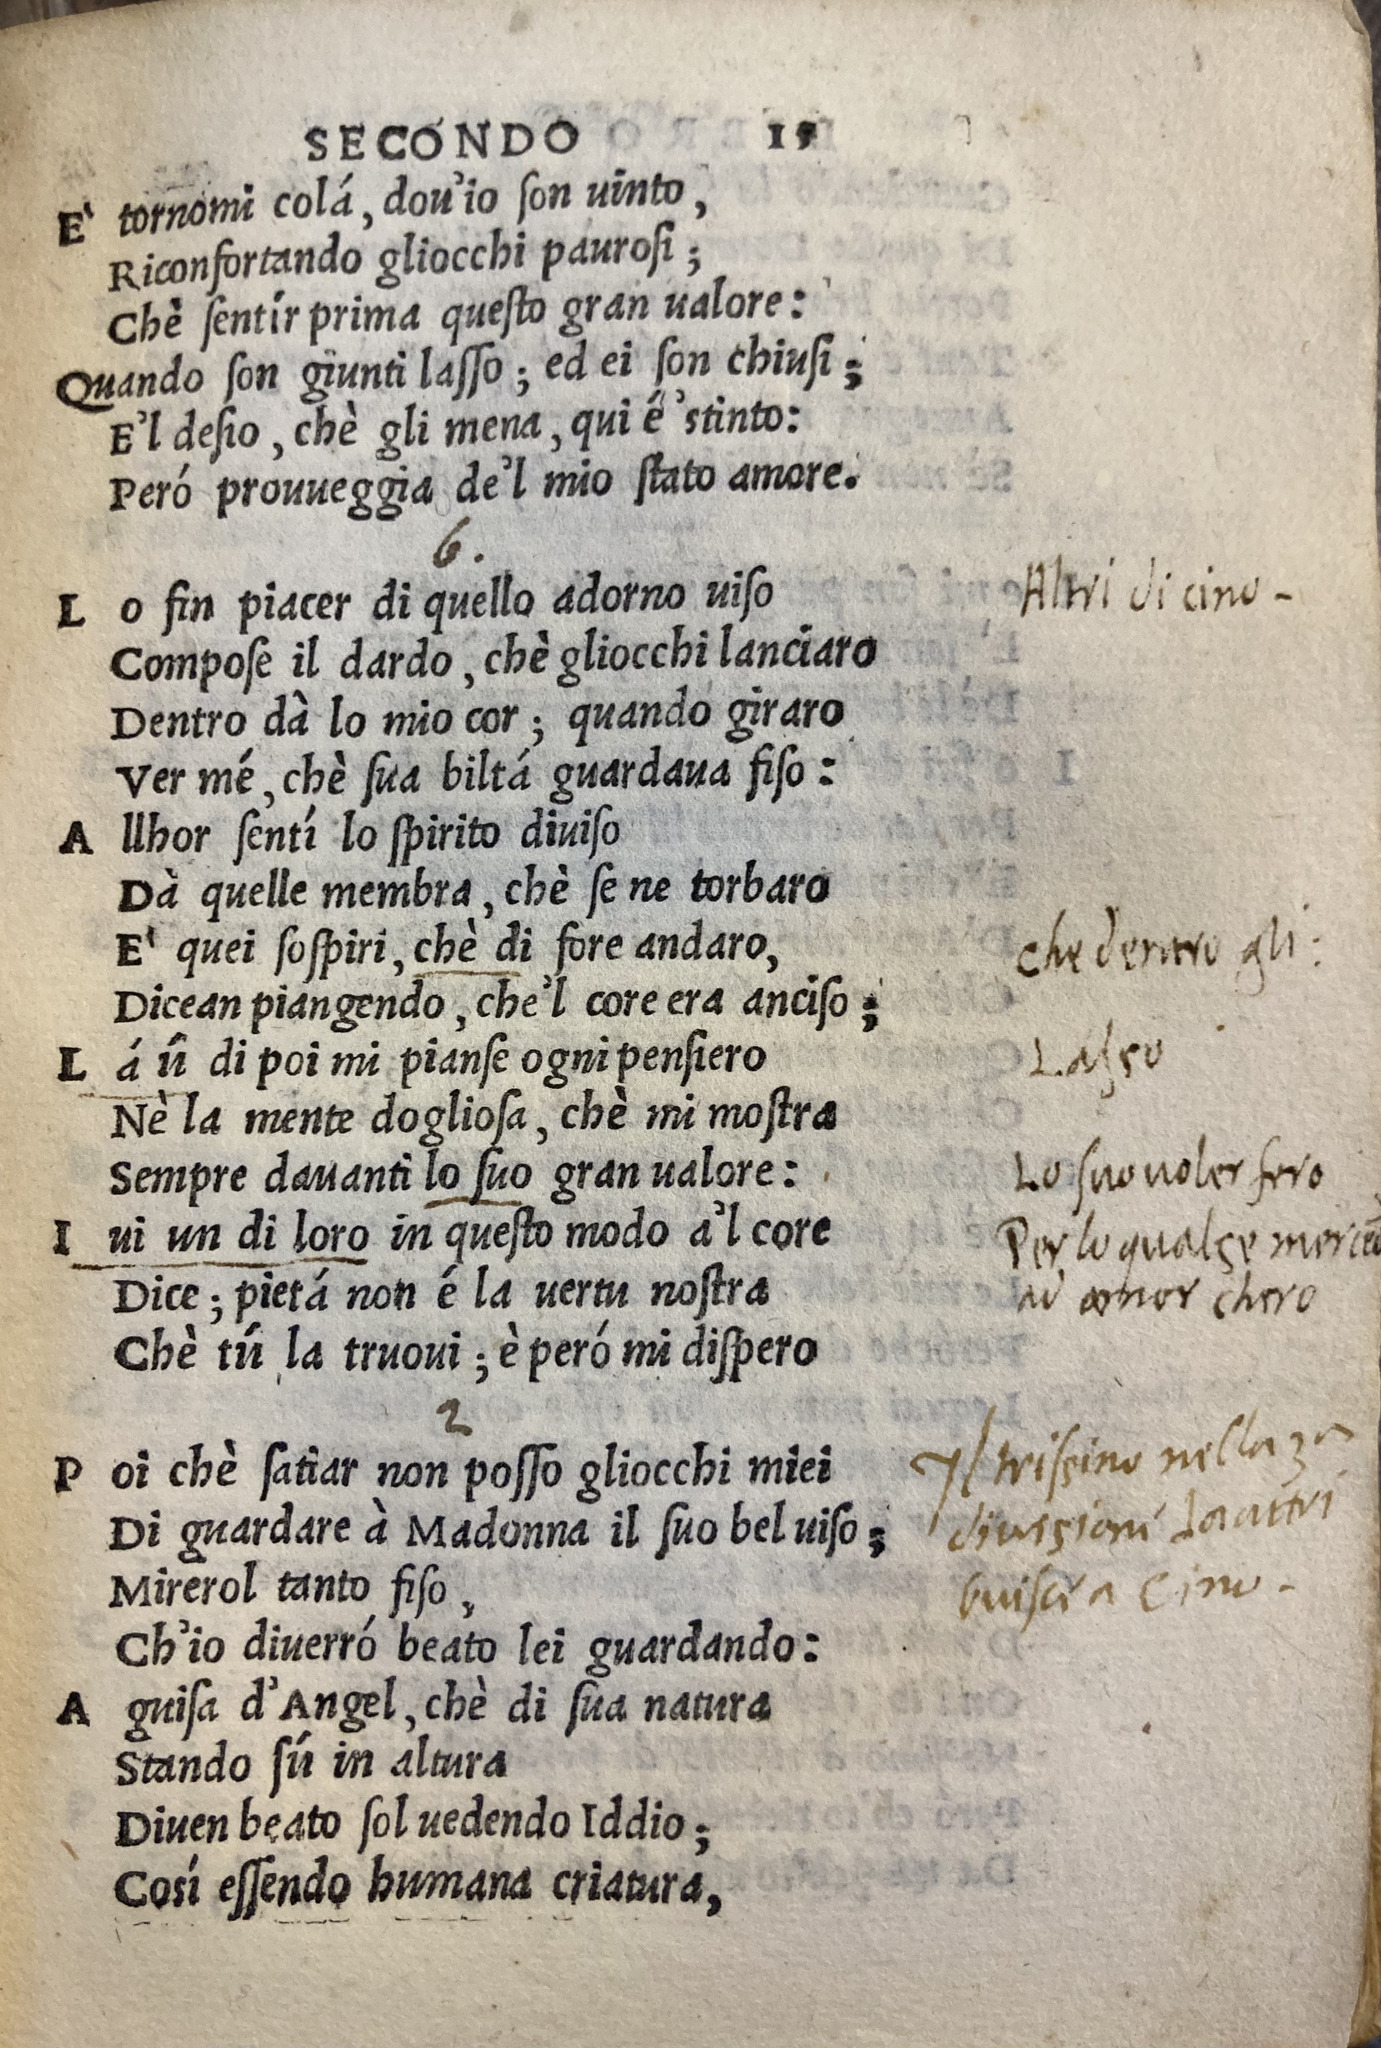 SECONDO 15
E' tornomi colá, dou'io ſon uinto,
Riconfortando gliocchi pauroſi;
Chè ſentír prima queſto gran ualore:
Quando ſon giunti laſſo; ed ei ſon chiuſi;
E'l deſio, chè gli mena, qui é 'stinto:
Peró prouueggia de'l mio ſtato amore.
6.
L o fin piacer di quello adorno uiſo
Altri di cino -
Compoſe il dardo, chè gliocchi lanciaro
Dentro dà lo mio cor; quando giraro
Ver mé, chè ſua biltá guardaua fiſo:
A llhor ſentí lo ſpirito diuiſo
Dà quelle membra, chè ſe ne torbaro
E' quei ſoſpiri, chè di fore andaro,
che dentro gli:
Dicean piangendo, che'l core era anciſo;
L á ú di poi mi pianſe ogni penſiero
Laſso
Nè la mente doglioſa, chè mi moſtra
Sempre dauanti lo ſuo gran ualore:
Lo ſuo uoler fero
I ui un di loro in queſto modo a'l core
Per lo qual
Dice; pietá non é la uertu noſtra
amor chero
Chè tú la truoui; è peró mi diſpero
2
P oi chè ſatiar non poſſo gliocchi miei
Il triſsino nella 3ª
Di guardare à Madonna il ſuo bel uiſo;
diuisioni la attri
Mirerol tanto fiſo,
buiſce a Cino -
Ch'io diuerró beato lei guardando:
A guiſa d'Angel, chè di ſua natura
Stando ſú in altura
Diuen beato ſol uedendo Iddio;
Cosí eſſendo humana criatura,